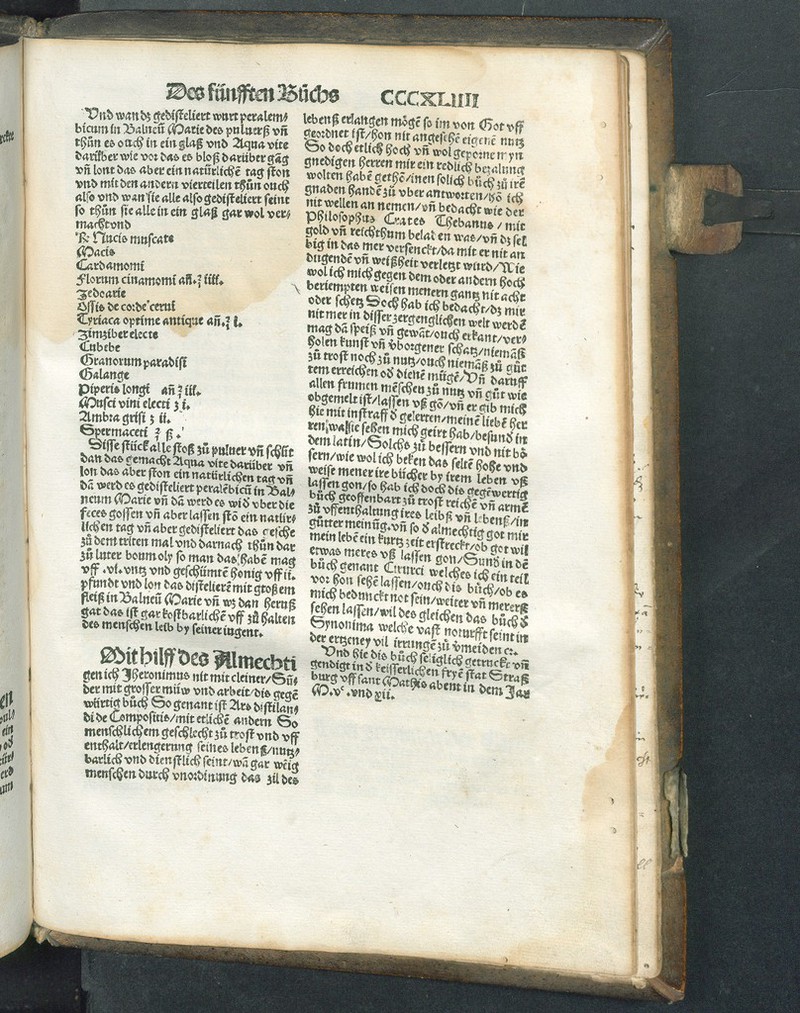 Des fünfften Büchs CCCXLIIII
Vnd wan dz gedisteliert wurt peralem⸗
bicum in Balneū Marie des puluerß vn̄
thün es ouch in ein glaß vnd Aqua vite
darüber wie vor das es bloß darüber gāg
vn̄ lont das aber ein natürliche tag ston
vnd mit den andern vierteilen thün ouch
also vnd wan sie alle also gedisteliert seint
so thün sie alle in ein glaß gar wol ver⸗
macht vnd
℞: Nucis muscate
Macis
Cardamomi
Florum cinamomi añ.℥ iiii.
Zedoarie
Ossis de corde cerui
Tyriaca optime antique añ.℥ i.
Zimziber electe
Cubebe
Granorum paradisi
Galange
Piperis longi añ ℥ iii.
Musci vini electi ʒ i.
Ambra grisi ʒ ii.
Spermaceti ℥ ß.
Disse stück alle stoß zů puluer vn̄ schüt
dan das gemacht Aqua vite darüber vn̄
lon das aber ston ein natürlichen tag vn̄
dā werd es gedisteliert peralēbicū in Bal⸗
neum Marie vn̄ dā werd es wid vber die
feces gossen vn̄ aber lassen stō ein natür⸗
lichen tag vn̄ aber gedisteliert das gesche
zů dem triten mal vnd darnach thün dar
zů luter boum oly so man das haben mag
vff .vi. vntz vnd geschümte honig vff ii.
pfundt vnd lon das distelierē mit großem
fleiß in Balneū Marie vn̄ wz dan heruß
gat das ist gar kostbarlichē vff zů halten
des menschen leib by seiner iugent.
Mit hilff des Almechti
gen ich Jheronimus nit mit cleiner/Sů⸗
der mit grosser miiw vnd arbeit/dis gegē
würtig büch So genant ist Ars distilan⸗
di de Compositis/mit etlichē andern So
menschlichem geschlecht zů trost vnd vff
enthalt/erlengerung seines lebenß/nutz⸗
barlich vnd dienstlich seint/wā gar wēig
menschen durch vnordinung das zil des
lebenß erlangen mögē so im von Got vff
geordnet ist/hon nit angesehē eigenē nutz
So doch etlich hoch vn̄ wol geporne myn
gnedigen herren mir ein redlich bezalung
wolten habē gethō/inen solich büch zů irē
gnaden handē zů vber antworten/hō ich
nit wellen an nemen/vn̄ bedacht wie der
Philosophus Crates Thebanus / mit
gold vn̄ reichthum belaten was/vn̄ dz sel
big in das mer versenckt/da mit er nit an
dugende vn̄ weißheit verletzt würd/Wie
wol ich mich gegen dem oder andern hoch
beriempten weisen menern gantz nit acht
oder schetz Doch hab ich bedacht/dz mir
nit mer in disser zergenglichen welt werdē
mag dā speiß vn̄ gewāt/ouch erkant/ver⸗
holen kunst vn̄ vborgener schatz/niemāß
zů trost noch zů nutz/ouch niemāß zů gůt
tem erreichen od dienē mügē/Vn̄ daruff
allen frumen mēschen zů nutz vn̄ gůt wie
obgemelt ist/lassen vß gō/vn̄ er gib mich
hie mit in straff d gelerten/meinē liebē her
ren/wa sie sehen mich geirt hab/besund in
dem latin/Solchs zů bessern vnd nit bō
sern/wie wol ich beken das selte hohe vnd
weise mener ire bücher by irem leben vß
lassen gon/so hab ich doch dis gegēwertig
büch geoffenbart zů trost reichē vn̄ armē
zů vffenthaltung ires leibß vn̄ lebenß/in
gütter meinūg.vn̄ so d almechtig got mir
mein lebē ein kurtz zeit erstreckt/ob got wil
etwas meres vß lassen gon/Sund in dē
büch genant Cirurci welches ich ein teil
vor hon sehē lassen/ouch dis büch/ob es
mich bedunckt not sein/weiter vn̄ mererß
sehen lassen/wil des gleichen das büch d
Synonima welche vast noturfft seint in
der ertzeney vil irrungē zů vmeiden ec.
Vnd hie dis büch seliglich getruckt vn̄
gendigt in d keisserlichen fryē stat Straß
burg vff sant Mathis abent in dem Jar
M.vᶜ .vnd xii.